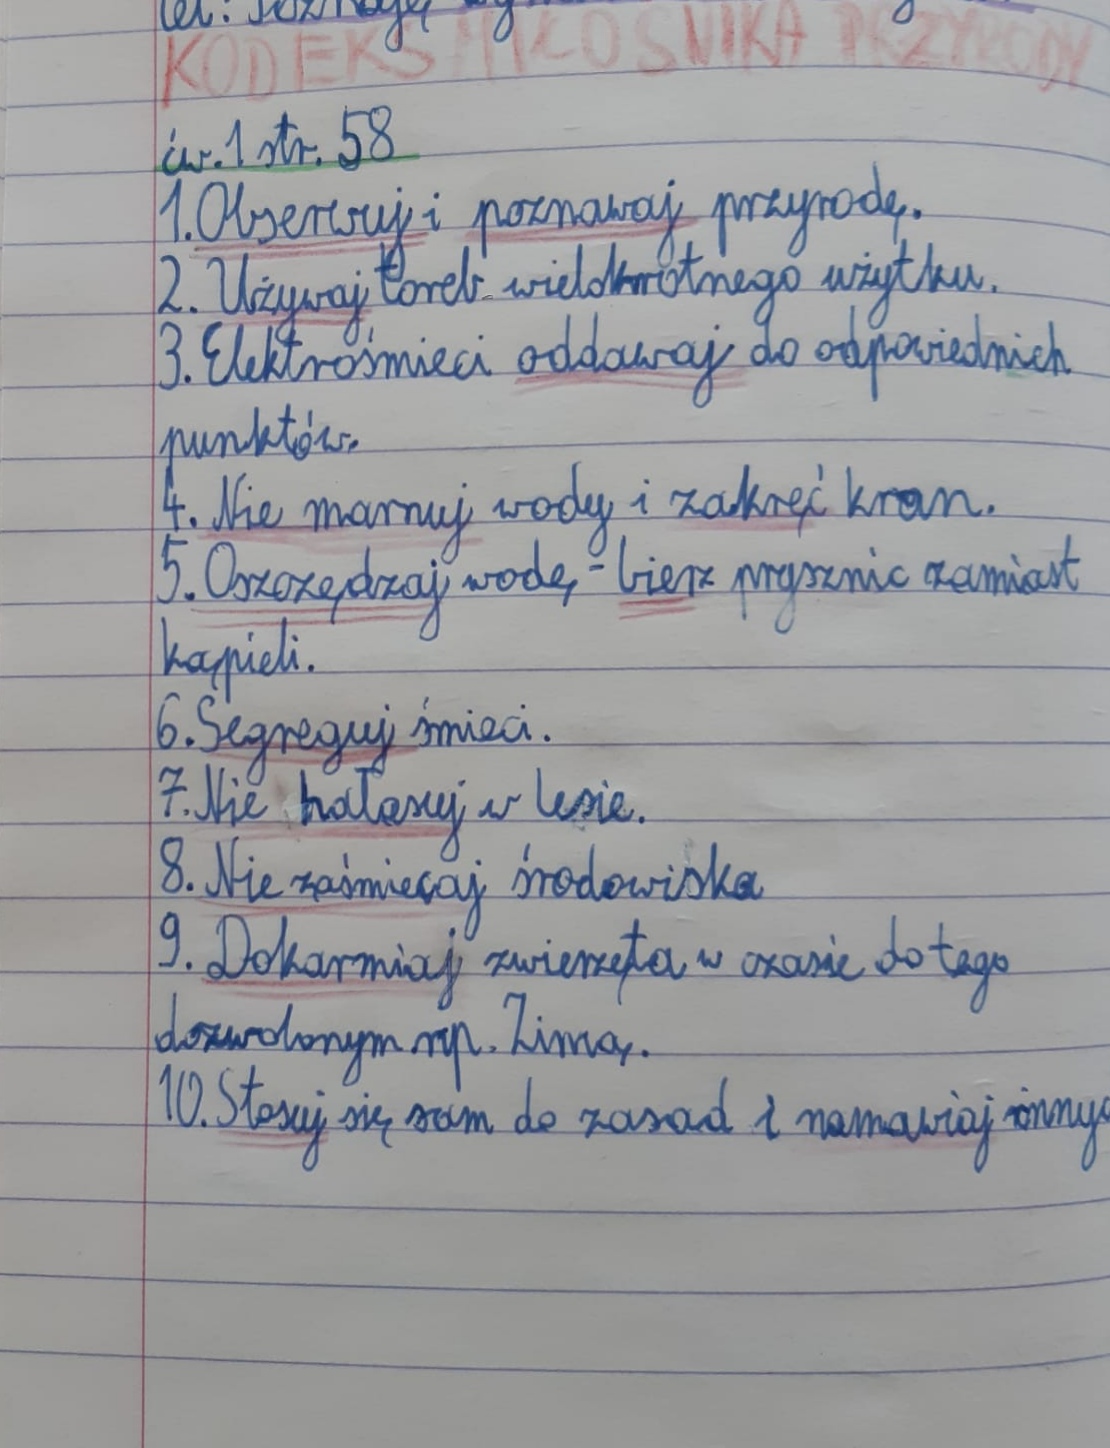 KODEKS MIŁOŚNIKA PRZYRODY
ćw. 1 str. 58
1. Obserwuj i poznawaj przyrodę.
2. Używaj toreb wielokrotnego użytku.
3. Elektrośmieci oddawaj do odpowiednich
punktów.
4. Nie marnuj wody i zakręć kran.
5. Oszczędzaj wodę, - bierz prysznic zamiast
kąpieli.
6. Segreguj śmieci.
7. Nie hałasuj w lesie.
8. Nie zaśmiecaj środowiska
9. Dokarmiaj zwierzęta w czasie do tego
dozwolonym np. Zimą.
10. Stosuj się sam do zasad i namawiaj